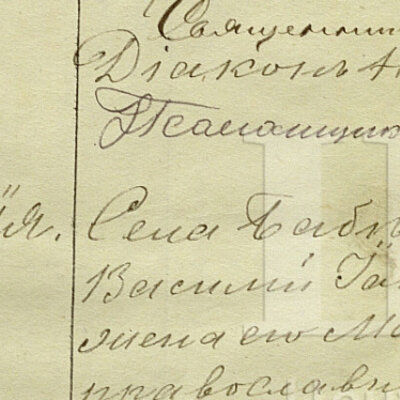 Священни
Діаконъ А
Псаломщик
ія. Села Баб
Василій Га
жена его Ма
православн